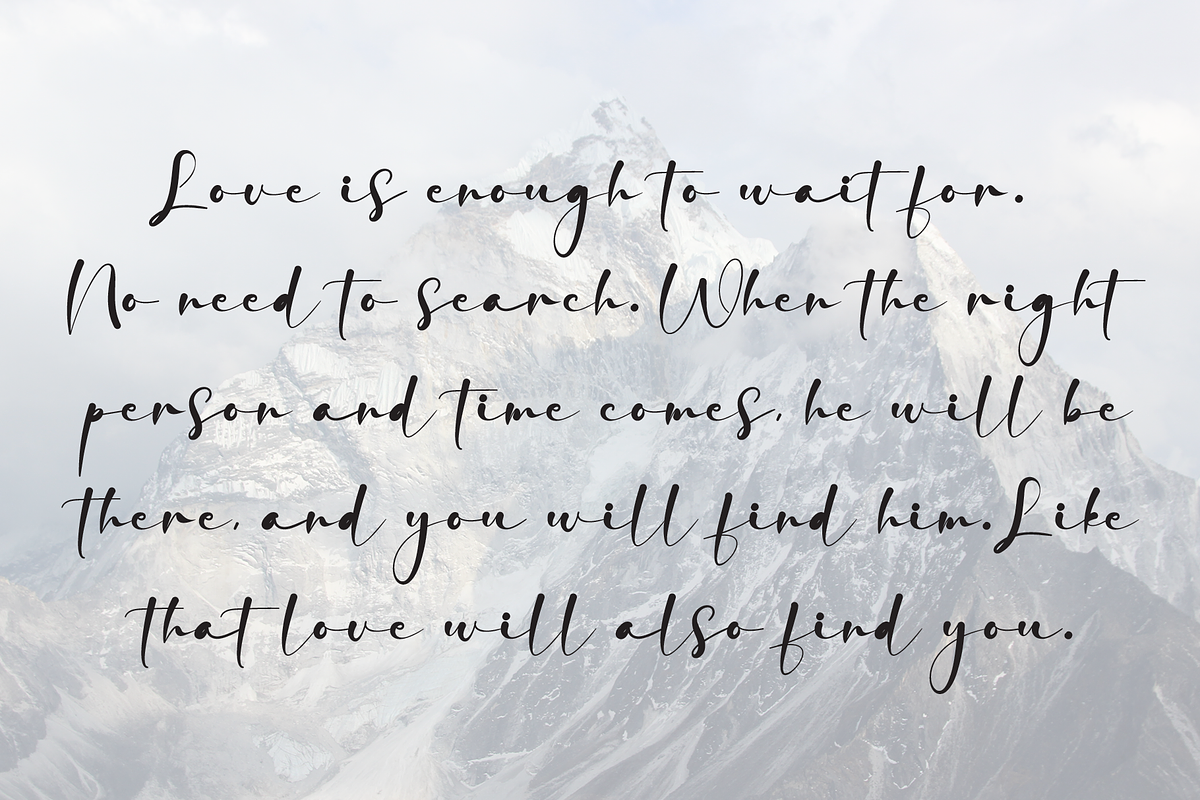 Love is enough to wait for.
No need to search. When the right
person and time comes, he will be
there, and you will find him. Like
that love will also find you.